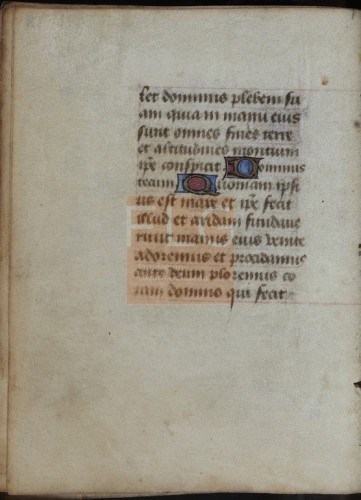 let dominus plebem su
am quia in manu eius
sunt omnes fines terre
et altitudines montium
ipse conspicit Dominus
tecum Quoniam ipsi
us est mare et ipse fecit
illud et aridam fundaue
runt manus eius venite
adoremus et procidamus
ante deum ploremus co
ram domino qui fecit